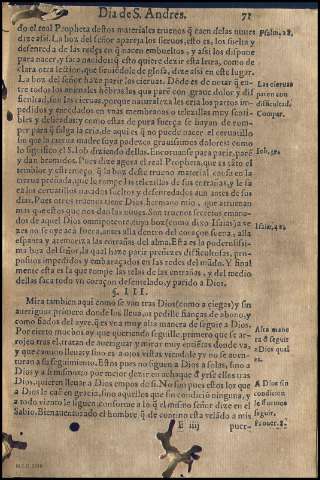 Dia de S. Andres.
72
do el real Propheta destos materiales truenos q̃ caen de las nuues
dize assi. La boz del señor apareja los sieruos, esto es, los suelta y
desenreda de las redes en q̃ nacen embueltos, y assi los dispone
para nacer y saca nacidos: q̃ esto quiere dezir esta letra, como de
clara otra lection, que siruiendole de glosa, dize assi en este lugar.
La boz del señor haze parir las cieruas. Dóde es de notar q̃ en-
tre todos los animales hébras las que paré con graue dolor y dif
ficultad, son las cieruas, porque naturaleza les cria los partos im-
pedidos y enredados en vnas membranas o telezillas muy sonti-
les y delicadas: y como estas de pura fuerça se huyan de rom-
per para q̃ salga la cria, de aqui es q̃ no puede nacer el ceruatillo
sin que la cierua madre suya padezca grauissimos dolores: como
lo significo el S. Iob diziendo dellas. Encoruanse para parir, paré
y dan bramidos. Pues dize agora el real Propheta, que es táto el
temblor y estremeço
cierua preñada, que le rompe las telezillas de sus entrañas, y le sa
ca los ceruatillos
dias. Pues otros truenos tiene Dios, hermano mio, que atruenan
mas que estos que nos dan las nuues. Son truenos secretos emana-
dos de aquel Dios omnipotente, cuya boz (como dixo Isaias) a ve
zes no se oye aca fuera, antes alla dentro del coraçon suena, alla
espanta y atemoriza las entrañas del alma. Esta es la poderosissi-
ma boz del señor, la qual haze parir preñezes difficultosas, pro-
positos impedidos y embaraçados en las redes del miedo. Y final
mente esta es la que rompe las telas de las entrañas, y del medio
dellas saca todo vn coraçon desenuelado, y parido a Dios.
§. III.
Mira tambien aqui como se van tras Dios (como a ciegas) y sin
aueriguar primero donde los lleua,
como fiados del ayre, q̃ es vna muy alta manera de seguir a Dios.
Por cierto muchos ay que queriendo seguille, primero que se ar-
rojen tras el, tratan de aueriguar y mirar muy enuètes donde va,
y que camino lleua: y sino es a ojos vistas viendole yr no se auen-
turan a su seguimiento. Estos pues no siguen a Dios a solas, sino a
Dios y a si mismos: o por mejor dezir
Dios, quieren lleuar a Dios empos de si. No son pues estos los que
a Dios le caé en gracia, sino aquellos que sin condició ninguna, y
a todo viento le siguen conforme a lo q̃ el mismo señor dize en el
Sabio. Bienauenturado el hombre q̃ de contino esta velãdo a mis
E iiij
puer-
Psalm. 28.
Las cieruas
paren con
difficultad.
Compar.
Iob. 39.
Isaie, 42.
Alta mane
ra d̃ seguir
a Dios qual
es.
A Dios sin
condicion
le
seguir.
Prouer. 8.